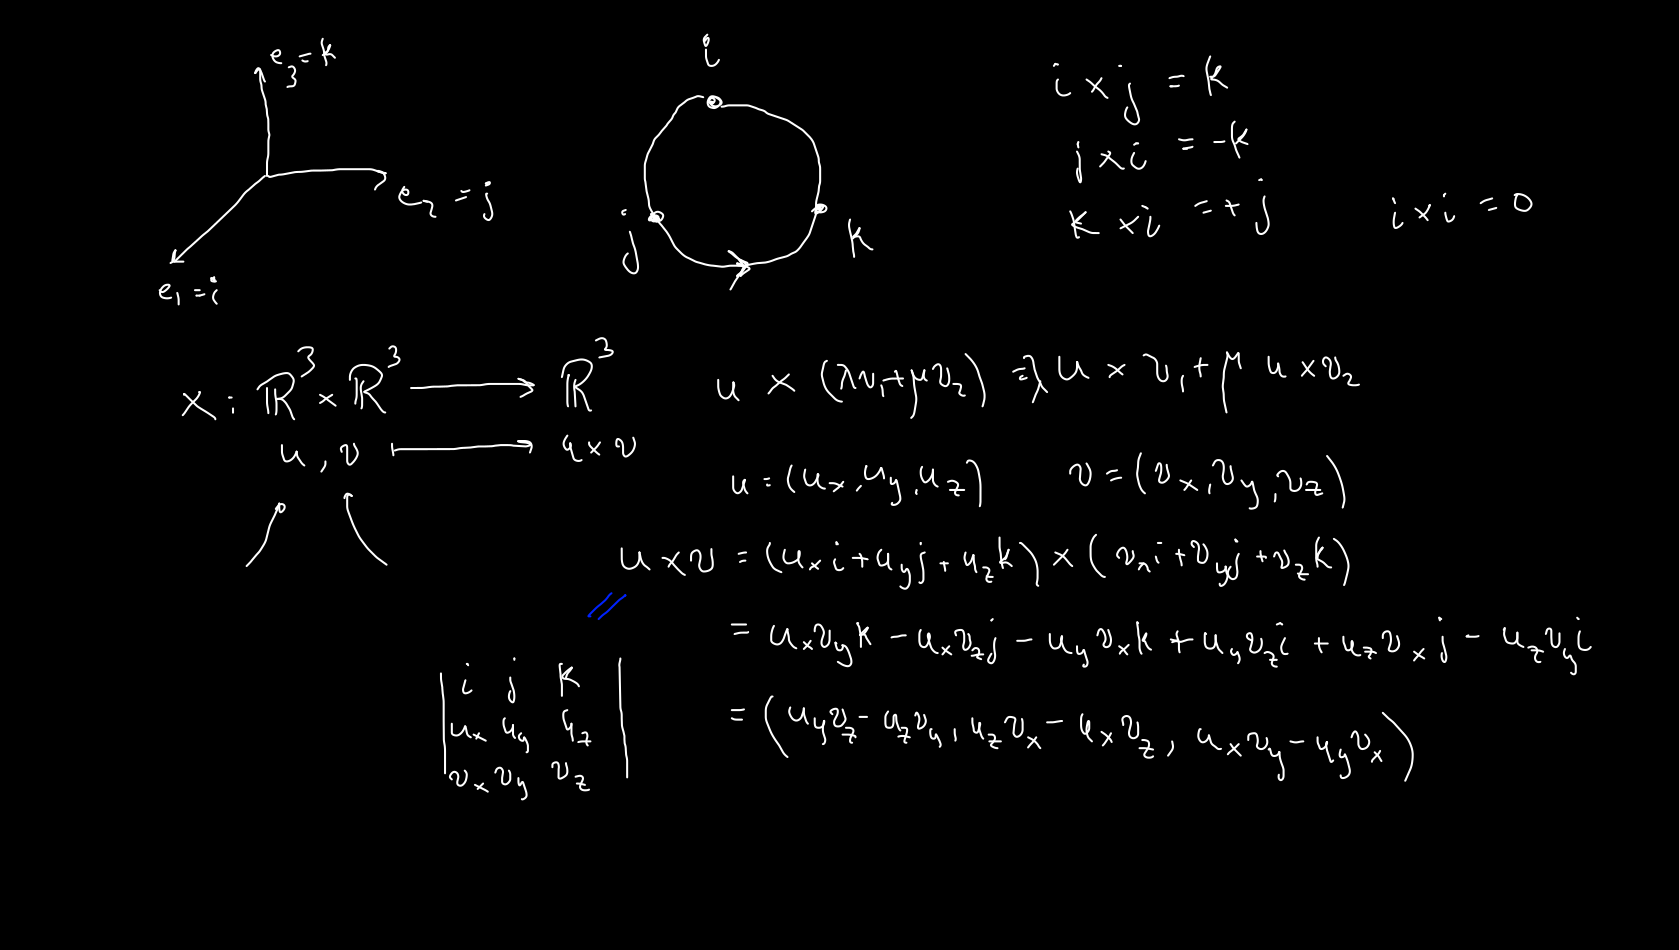 e₃ = k
e₂ = j
e₁ = i
i
j
k
i × j = k
j × i = -k
k × i = + j
i × i = 0
× : ℝ³ × ℝ³ ⟶ ℝ³
u , v ⟼ u × v
u × (λv₁ + μv₂) = λ u × v₁ + μ u × v₂
u = (uₓ, u_y, u_z) v = (vₓ, v_y, v_z)
u × v = (uₓ i + u_y j + u_z k) × (vₓ i + v_y j + v_z k)
= uₓv_y k - uₓv_z j - u_y vₓ k + u_y v_z i + u_z vₓ j - u_z v_y i
= (u_y v_z - u_z v_y, u_z vₓ - uₓ v_z, uₓ v_y - u_y vₓ)
//
| i j k |
| uₓ u_y u_z |
| vₓ v_y v_z |